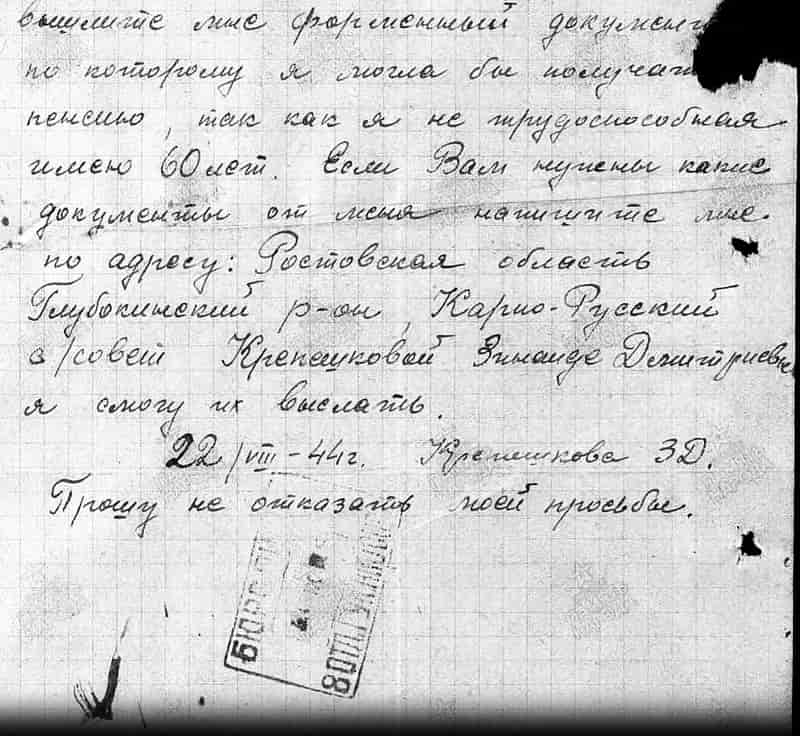 вышлите мне форменный документ
по которому я могла бы получать
пенсию, так как я не трудоспособная
имею 60 лет. Если Вам нужны какие
документы от меня напишите мне
по адресу: Ростовская область
Глубокинский р-он, Карпо-Русский
с/совет Крепешковой Зинаиде Дмитриевне
я смогу их выслать.
22/VIII-44г. Крепешкова ЗД.
Прошу не отказать моей просьбы.
БЮРО